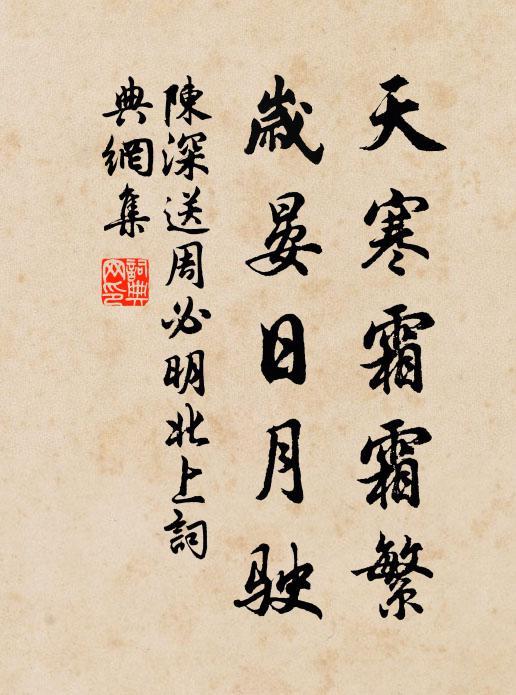 天寒霜霜繁
歲晏日月駛
陳深送周必明北上詞
典網集
詞典
网印